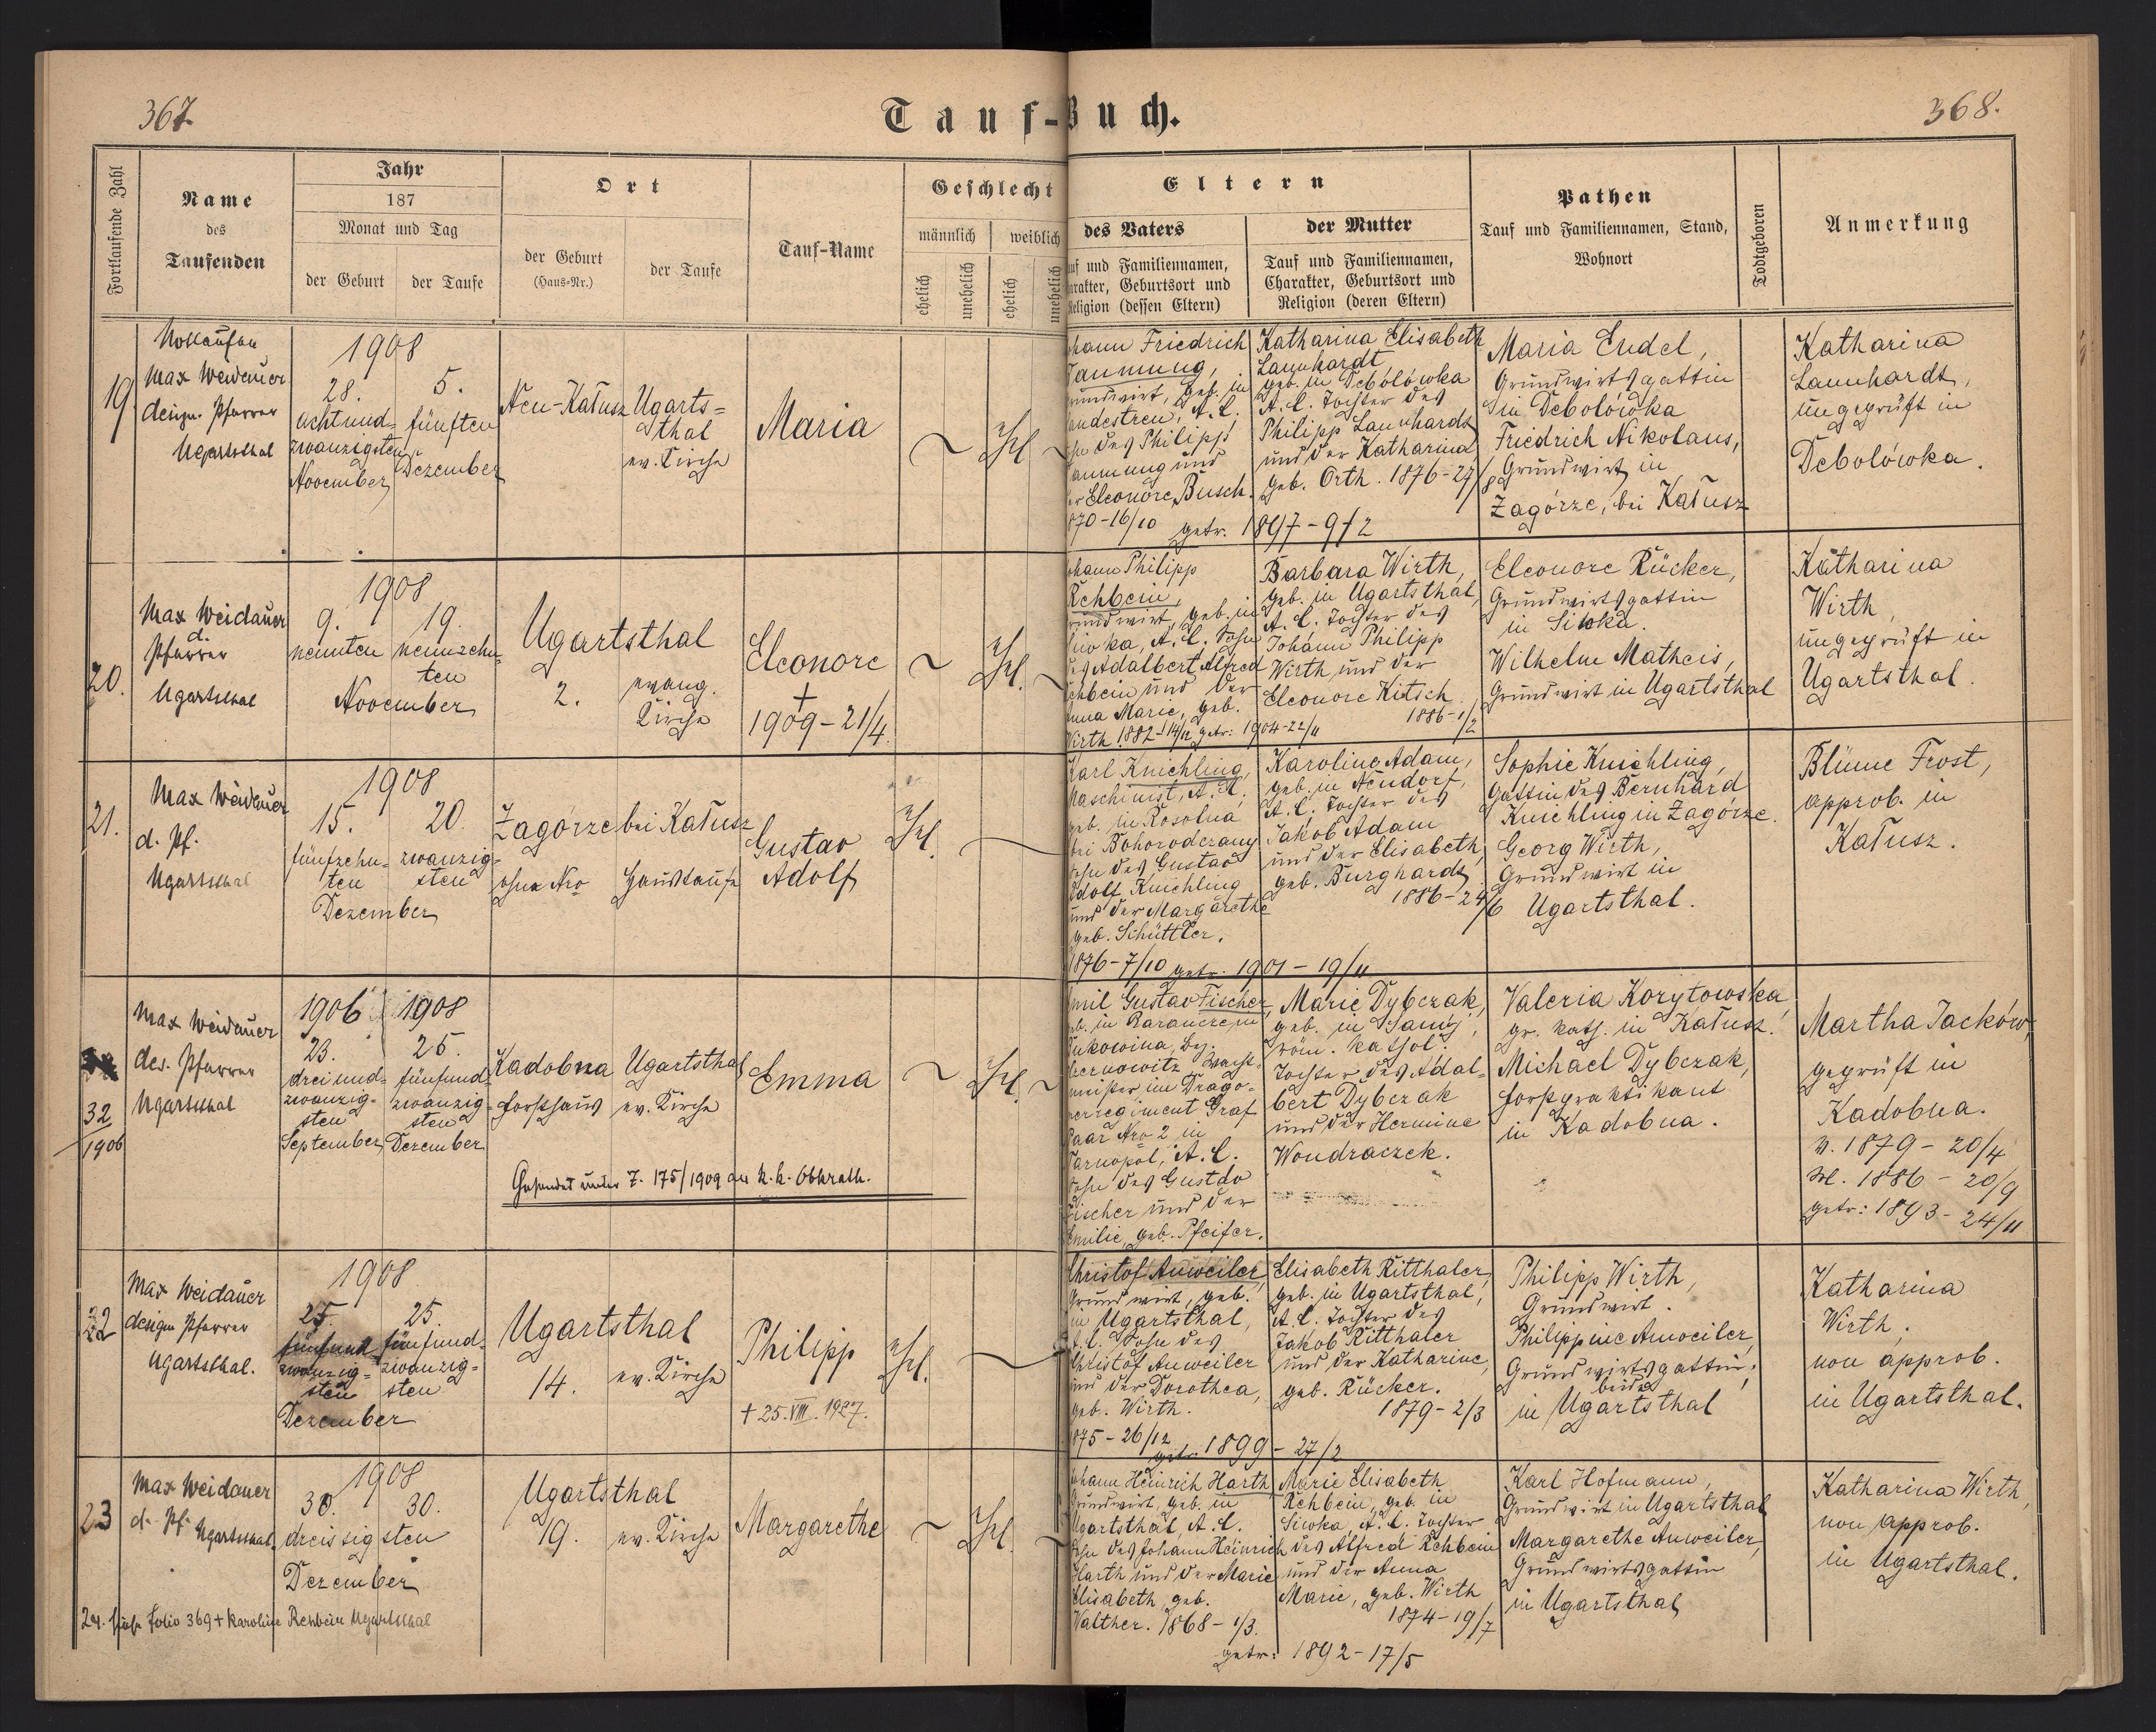 367.
Tauf-Buch.
368.
Fortlaufende Zahl
Name
des
Taufenden
Jahr
187
Monat und Tag
der Geburt
der Taufe
Ort
der Geburt
(Haus-Nr.)
der Taufe
Tauf-Name
Geschlecht
männlich
weiblich
ehelich
unehelich
ehelich
unehelich
Eltern
des Vaters
auf und Familiennamen,
arakter, Geburtsort und
Religion (dessen Eltern)
der Mutter
Tauf und Familiennamen,
Charakter, Geburtsort und
Religion (deren Eltern)
Pathen
Tauf und Familiennamen, Stand,
Wohnort
Todtgeboren
Anmerkung
19
Max Weidauer
design. Pfarrer
Ugartsthal
1908
28.
achtund-
zwanzigsten
November
5.
fünften
Dezember
Neu-Kałusz
Ugarts=
thal
ev. Kirche
Maria
ohann Friedrich
undwirt, geb. in
andestreu, A. C.
ohn des Philipp
und
er Eleonore Busch.
870-16/10 getr. 1897-9/2
Katharina Elisabeth
Launhardt
geb. in Debolówka
A. C. Tochter des
Philipp Launhardt
und der Katharina
geb. Orth. 1876-27/8
Maria Endel,
Grundwirtsgattin
in Debolówka
Friedrich Nikolaus,
Grundwirt in
Zagórze, bei Kałusz
Katharina
Launhardt,
ungeprüft in
Debolówka.
20.
Max Weidauer
d.
Pfarrer
Ugartsthal
1908
9.
neunten
19.
neunzehn-
ten
November
Ugartsthal
2.
evang.
Kirche
Eleonore
+
1909-21/4.
ohann Philipp
Rehbein,
rundwirt, geb. in
iwka, A. C. Sohn
des Adalbert Alfred
ehbein und der
nna Marie, geb.
Wirth 1882-14/12 getr: 1904-22/11
Barbara Wirth,
geb. in Ugartsthal,
A. C. Tochter des
Johann Philipp
Wirth und der
Eleonore Kitsch
1886-1/2
Eleonore Rücker,
Grundwirtsgattin
in Siwka.
Wilhelm Matheis,
Grundwirt in Ugartsthal
Katharina
Wirth,
ungeprüft in
Ugartsthal.
21.
Max Weidauer
d. Pf.
Ugartsthal
1908
15.
fünfzehn-
ten
20.
zwanzig-
sten
Dezember
Zagórze bei Kałusz
ohne Nro
Haustaufe
Gustav
Adolf
Karl Knichling,
Maschinist, A. C.
geb. in Rosolna
bei Bohorodczany
Sohn des Gustav
Adolf Knichling
und der Margarethe
geb. Schüttler.
1876-7/10 getr. 1901-19/11
Karoline Adam,
geb. in Neudorf,
A. C. Tochter des
Jakob Adam
und der Elisabeth,
geb. Burghardt
1886-24/6
Sophie Knichling,
Gattin des Bernhard
Knichling in Zagórze.
Georg Wirth,
Grundwirt in
Ugartsthal.
Blüme Frost,
approb. in
Kałusz.
32
1906
Max Weidauer
des. Pfarrer
Ugartsthal
1906
23.
dreiund-
zwanzig-
sten
September
1908
25.
fünfund-
zwanzig-
sten
Dezember
Kadobna
Forsthaus
Ugartsthal
ev. Kirche
Emma
mil Gustav Fischer,
b. in
ukowina, Bez.
zernowitz Wacht-
meister im Drago-
nerregiment Graf
Paar Nro 2 in
Tarnopol, A. C.
Sohn des Gustav
Fischer und der
Emilie, geb. Pfeifer.
Marie Dybczak,
geb. in
röm. kathol.
Tochter des Adal-
bert Dybczak
und der Hermine
Wondraczek.
Valeria Korytowska,
gr. kath. in Kałusz.
Michael Dybczak,
Forstpraktikant
in Kadobna.
Martha Jacków,
geprüft in
Kadobna.
V. 1879-20/4
M. 1886-20/9
getr: 1893-24/11
Gesendet unter Z. 175/1909 an k. k. Obkrath.
22
Max Weidauer
design Pfarrer
Ugartsthal.
1908
25.
fünfund
zwanzig=
sten
25.
fünfund-
zwanzig=
sten
Dezember
Ugartsthal
14.
ev. Kirche
Philipp
+ 25. VIII. 1927.
Christof Anweiler,
Grundwirt, geb.
in Ugartsthal,
A. C. Sohn des
Christof Anweiler
und der Dorothea,
geb. Wirth.
875-26/12 getr. 1899-27/2
Elisabeth Ritthaler,
geb. in Ugartsthal,
A. C. Tochter des
Jakob Ritthaler
und der Katharine,
geb. Rücker.
1879-2/3
Philipp Wirth,
Grundwirt.
Philippine Anweiler,
Grundwirtsgattin;
beide
in Ugartsthal
Katharina
Wirth,
non approb.
in Ugartsthal.
23
Max Weidauer
d. Pf.
Ugartsthal.
1908
30.
30.
dreissigsten
Dezember
Ugartsthal
19.
ev. Kirche
Margarethe
ohann Heinrich Harth
Grundwirt, geb. in
Ugartsthal, A. C.
Sohn des Johann Heinrich
Harth und der Marie
Elisabeth, geb.
Walther. 1868-1/3.
getr: 1892-17/5
Marie Elisabeth
Rehbein, geb. in
Siwka, A. C. Tochter
des Alfred Rehbein
und der Anna
Marie, geb. Wirth
1874-19/7
Karl Hofmann,
Grundwirt in Ugartsthal
Margarethe Anweiler,
Grundwirtsgattin
in Ugartsthal
Katharina Wirth,
non approb.
in Ugartsthal.
24. siehe Folio 369 + Karoline Rehbein Ugartsthal